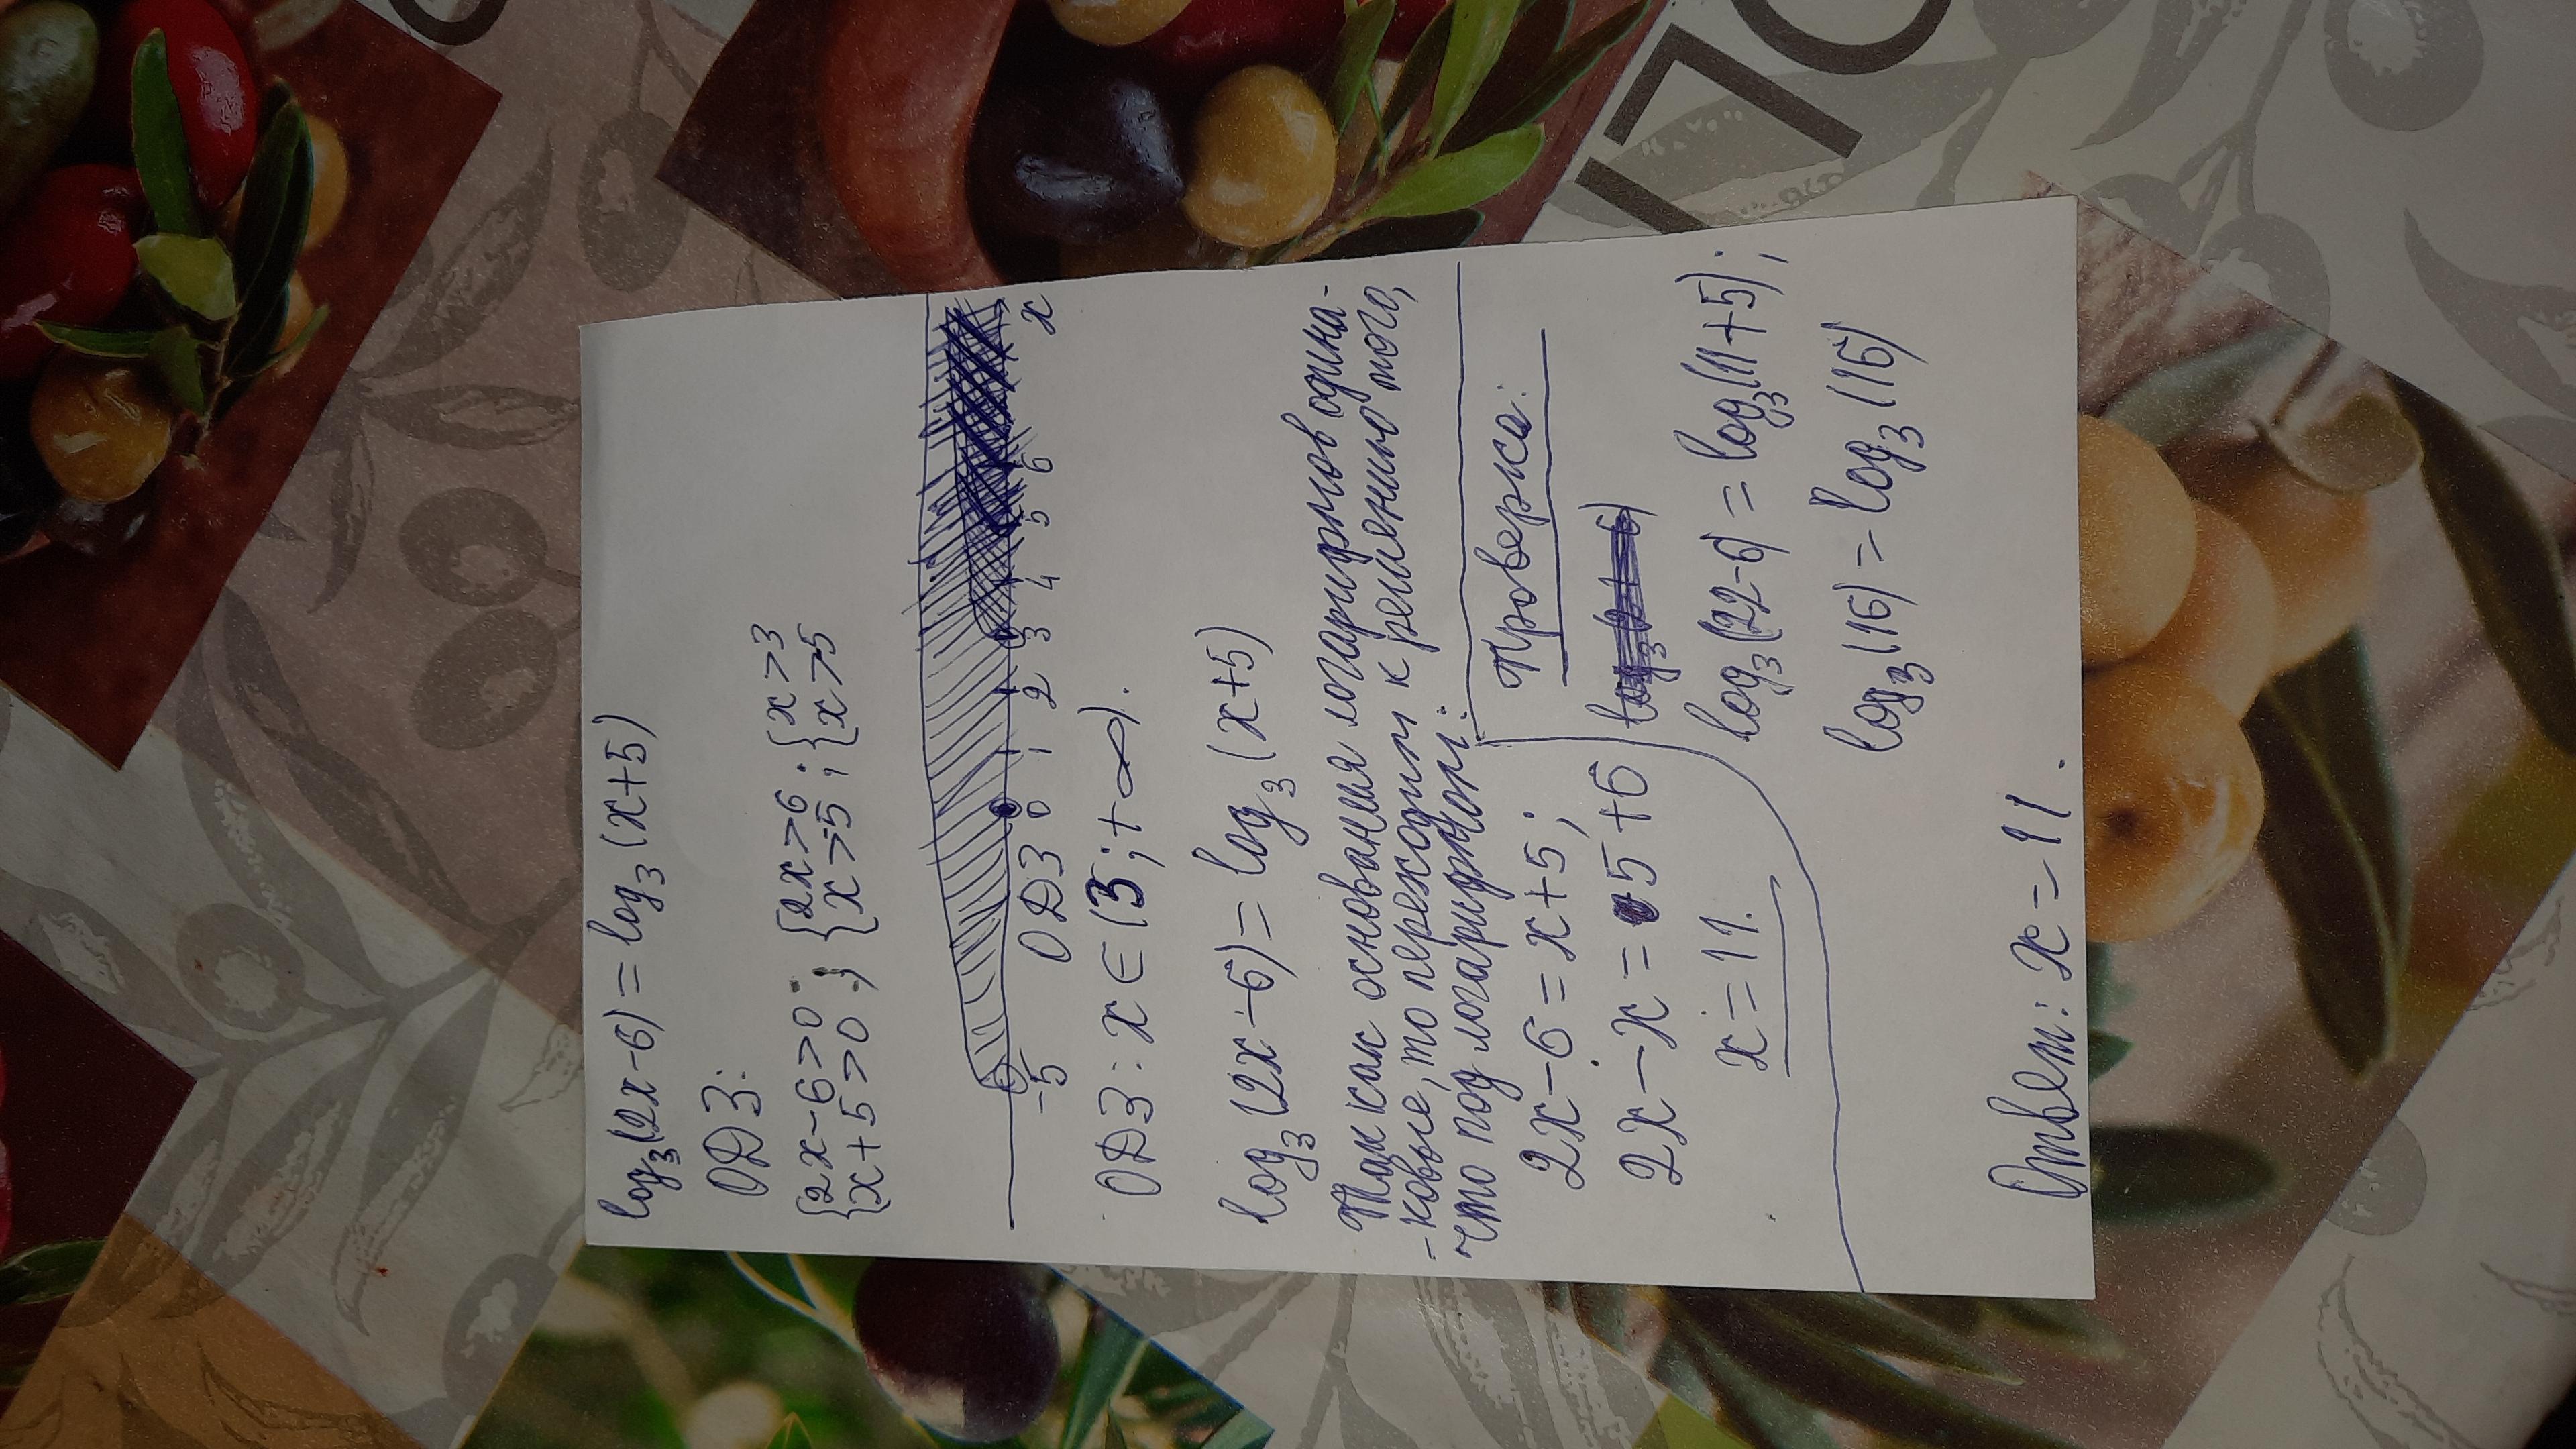 log₃(2x-6) = log₃(x+5)
ОДЗ:
{2x-6>0; {2x>6; {x>3
{x+5>0; {x>-5; {x>-5
-5 0 1 2 3 4 5 6 x
ОДЗ
ОДЗ: x∈(3;+∞).
log₃(2x-6) = log₃(x+5)
Так как основания логарифмов одина-
-ковые, то переходим к решению того,
что под логарифмом:
2x-6=x+5;
2x-x=5+6
x=11.
Проверка:
log₃(22-6) = log₃(11+5);
log₃(16) = log₃(16)
Ответ: x=11.